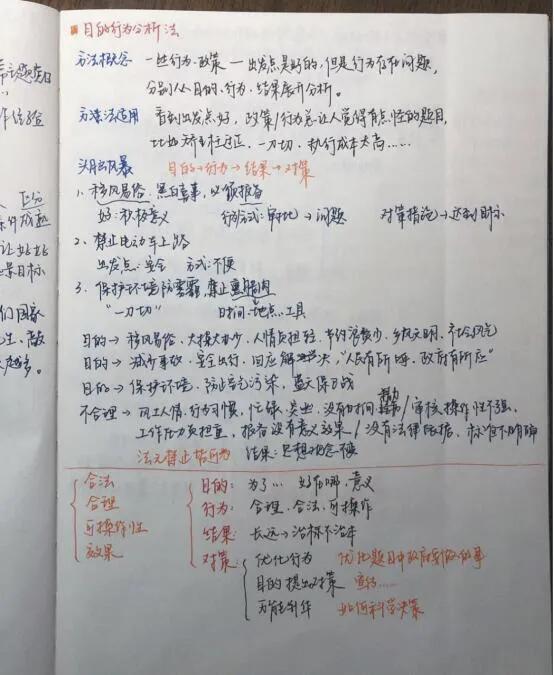 目的行为分析法
方法概念 一些行为、政策—出发点是好的,但是行为存在问题,
分别从目的、行为、结果展开分析。
方法适用 看到出发点好,政策/行为总让人觉得有点怪的题目,
比如矫枉过正、一刀切、执行成本太高……
头脑风暴 目的→行为→结果→对策
1、移风易俗、黑白喜事,必须报备
好:积极意义 行为方式:审批→问题 对策措施→达到目标
2、禁止电动车上路
出发点:安全 方式:不便
3、保护环境防雾霾,禁止熏腊肉
“一刀切” 时间、地点、工具
目的→移风易俗、大操大办少、人情负担轻、节约浪费少、乡风文明、社会风气
目的→减少事故、安全出行、回应解决,“人民有所呼、政府有所应”
目的→保护环境、防止空气污染、蓝天保卫战
不合理→风土人情、行为习惯,忙碌、突出、没有时间精力/审核、操作性不强、
工作压力负担重,报备没有意义效果/没有法律依据、标准不明确
法无禁止皆可为 结果:思想观念不便
合法
合理
可操作性
效果
目的:为了… 好在哪、意义
行为:合理、合法、可操作
结果:长远→治标不治本
对策:优化行为 优化题目中政府要做的事
目的提出对策 宣传……
万能制作 如何科学决策
帝
作经验
区分
件成熟
让站站
景目标
们国家
生、敲
越多。